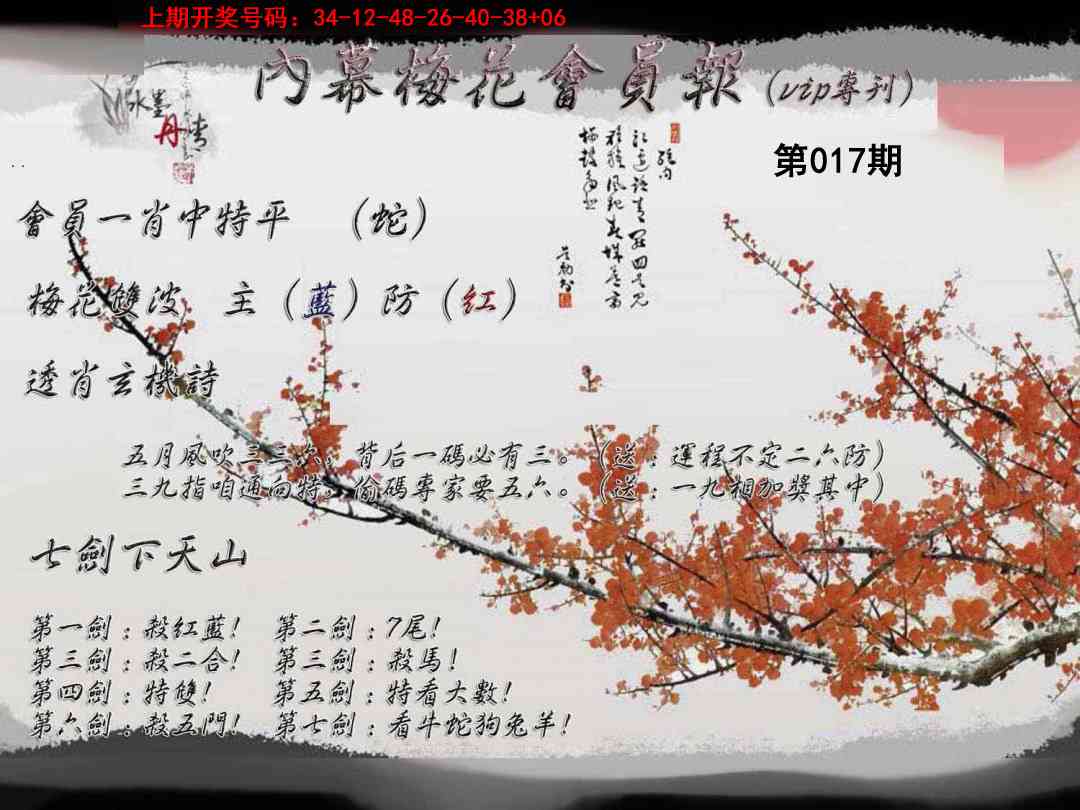 上期开奖号码：34-12-48-26-40-38+06
內幕梅花會員報（vip專刊）
水墨
丹青
第017期
會員一肖中特平 （蛇）
梅花雙波 主（藍）防（红）
透肖玄機詩
五月風吹三三次，背后一碼必有三。（送：運程不定二六防）
三九指咱通向特，偷碼專家要五六。（送：一九相加獎其中）
七劍下天山
第一劍：殺红藍！ 第二劍：7尾！
第三劍：殺二合！ 第三劍：殺馬！
第四劍：特雙！ 第五劍：特看大數！
第六劍：殺五門！ 第七劍：看牛蛇狗兔羊！